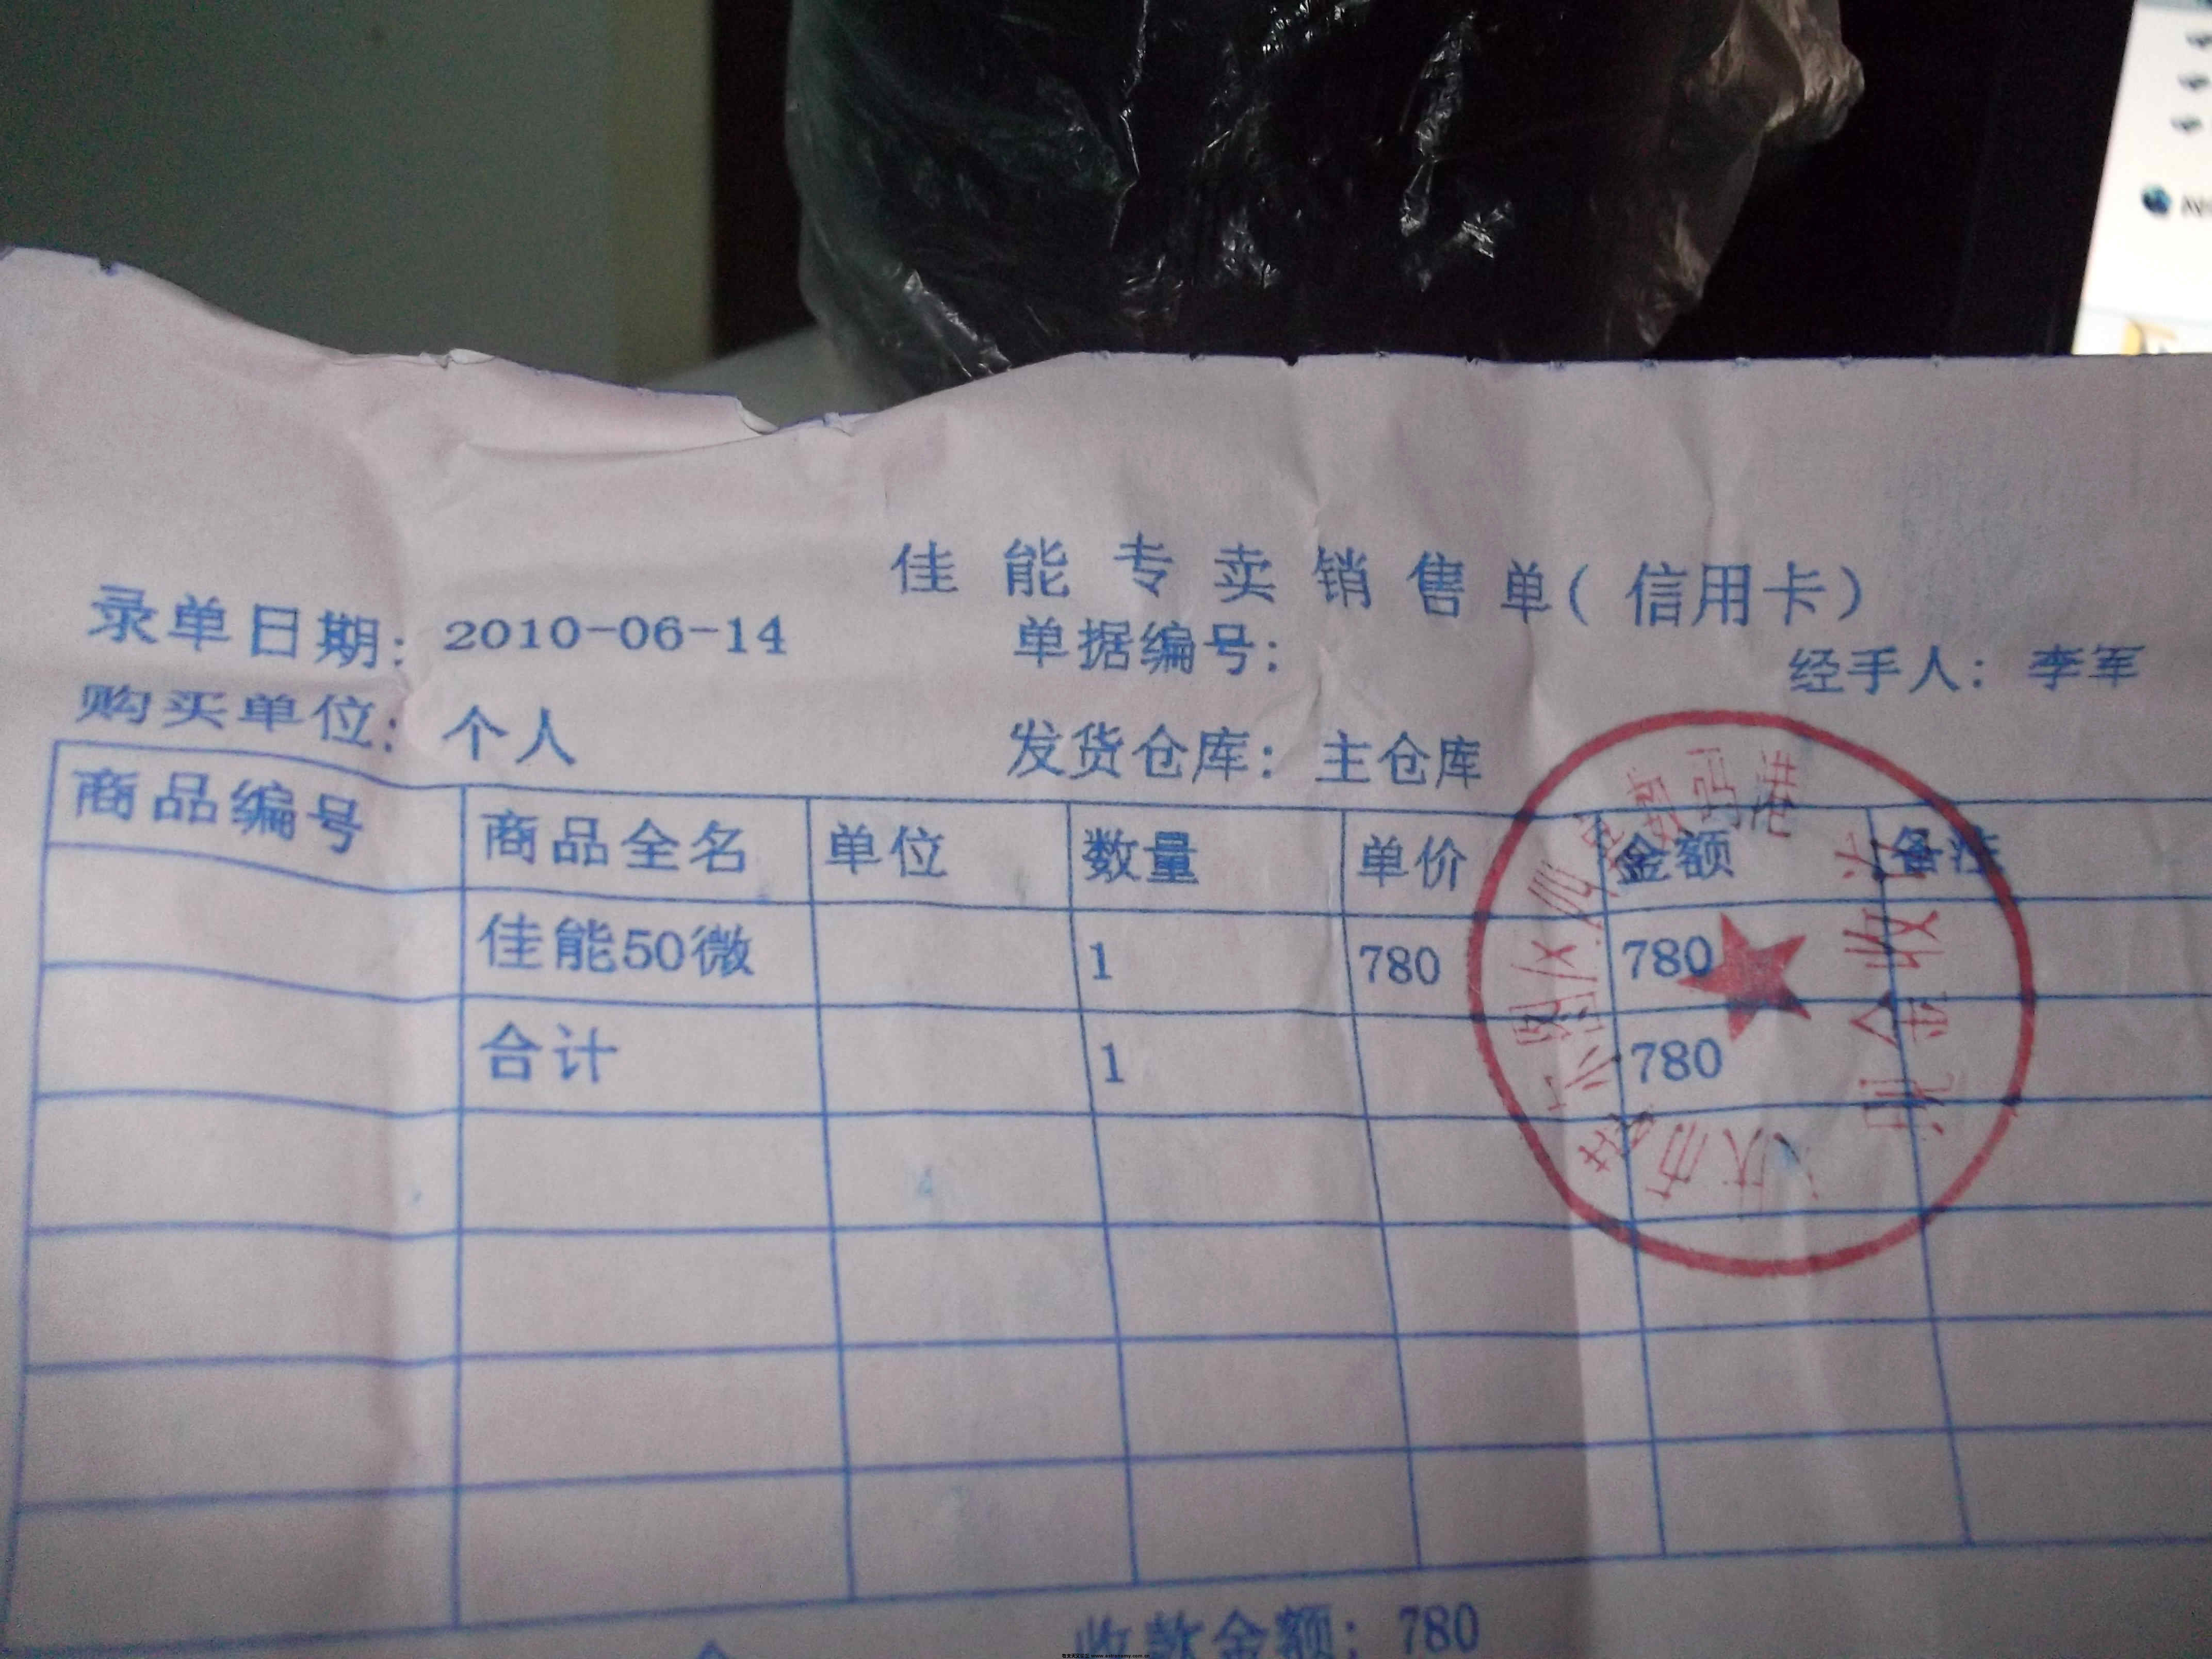 佳能专卖销售单(信用卡)
录单日期: 2010-06-14 单据编号: 经手人: 李军
购买单位: 个人 发货仓库: 主仓库
商品编号 商品全名 单位 数量 单价 金额 备注
佳能50微 1 780 780
合计 1 780
现金收讫
收款金额: 780